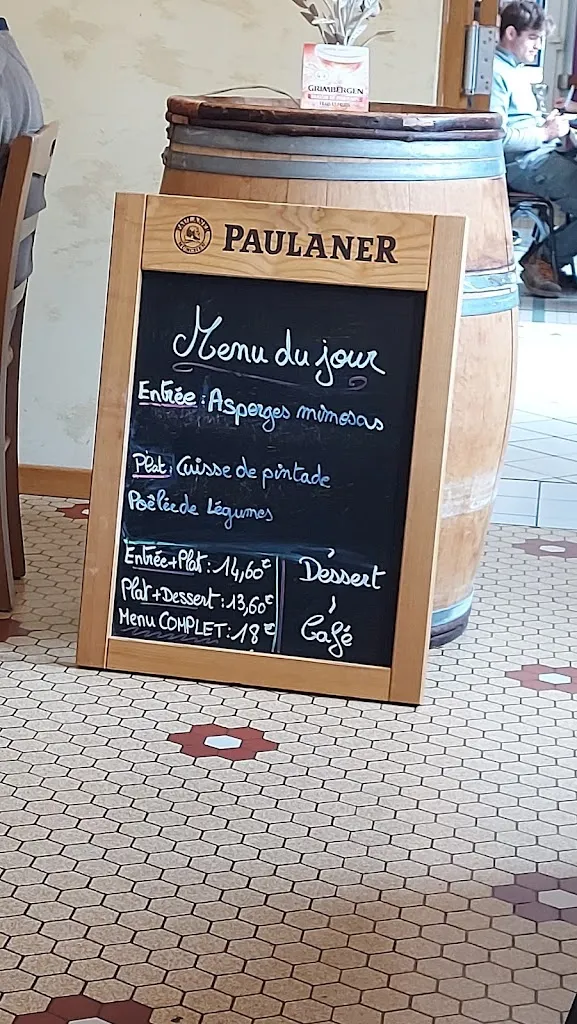 GRIMBERGEN
PAULANER
Menu du jour
Entrée : Asperges mimosas
Plat : Cuisse de pintade
Poêlée de Légumes
Entrée+Plat : 14,60€
Plat+Dessert : 13,60€
Menu COMPLET : 18€
Dessert
Café